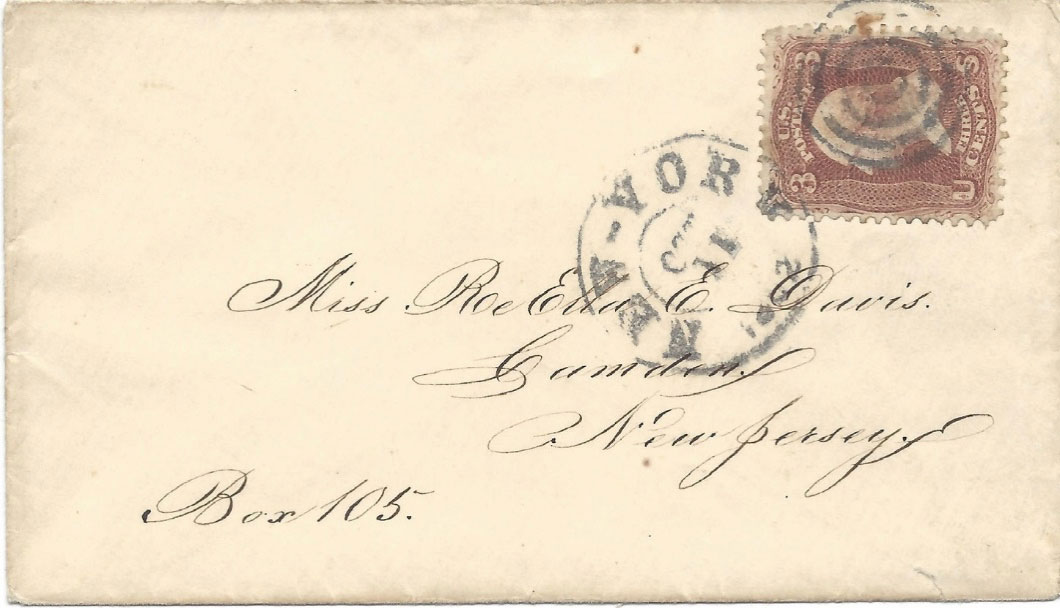 U.S. POSTAGE
3 3
THREE CENTS
U S
NEW-YORK
OCT
Miss. ReElla E. Davis.
Camden,
New Jersey,
Box 105.